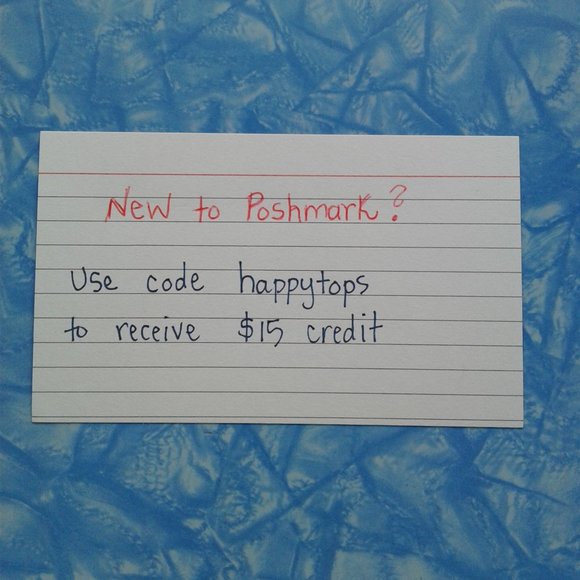 New to Poshmark?
Use code happytops
to receive $15 credit